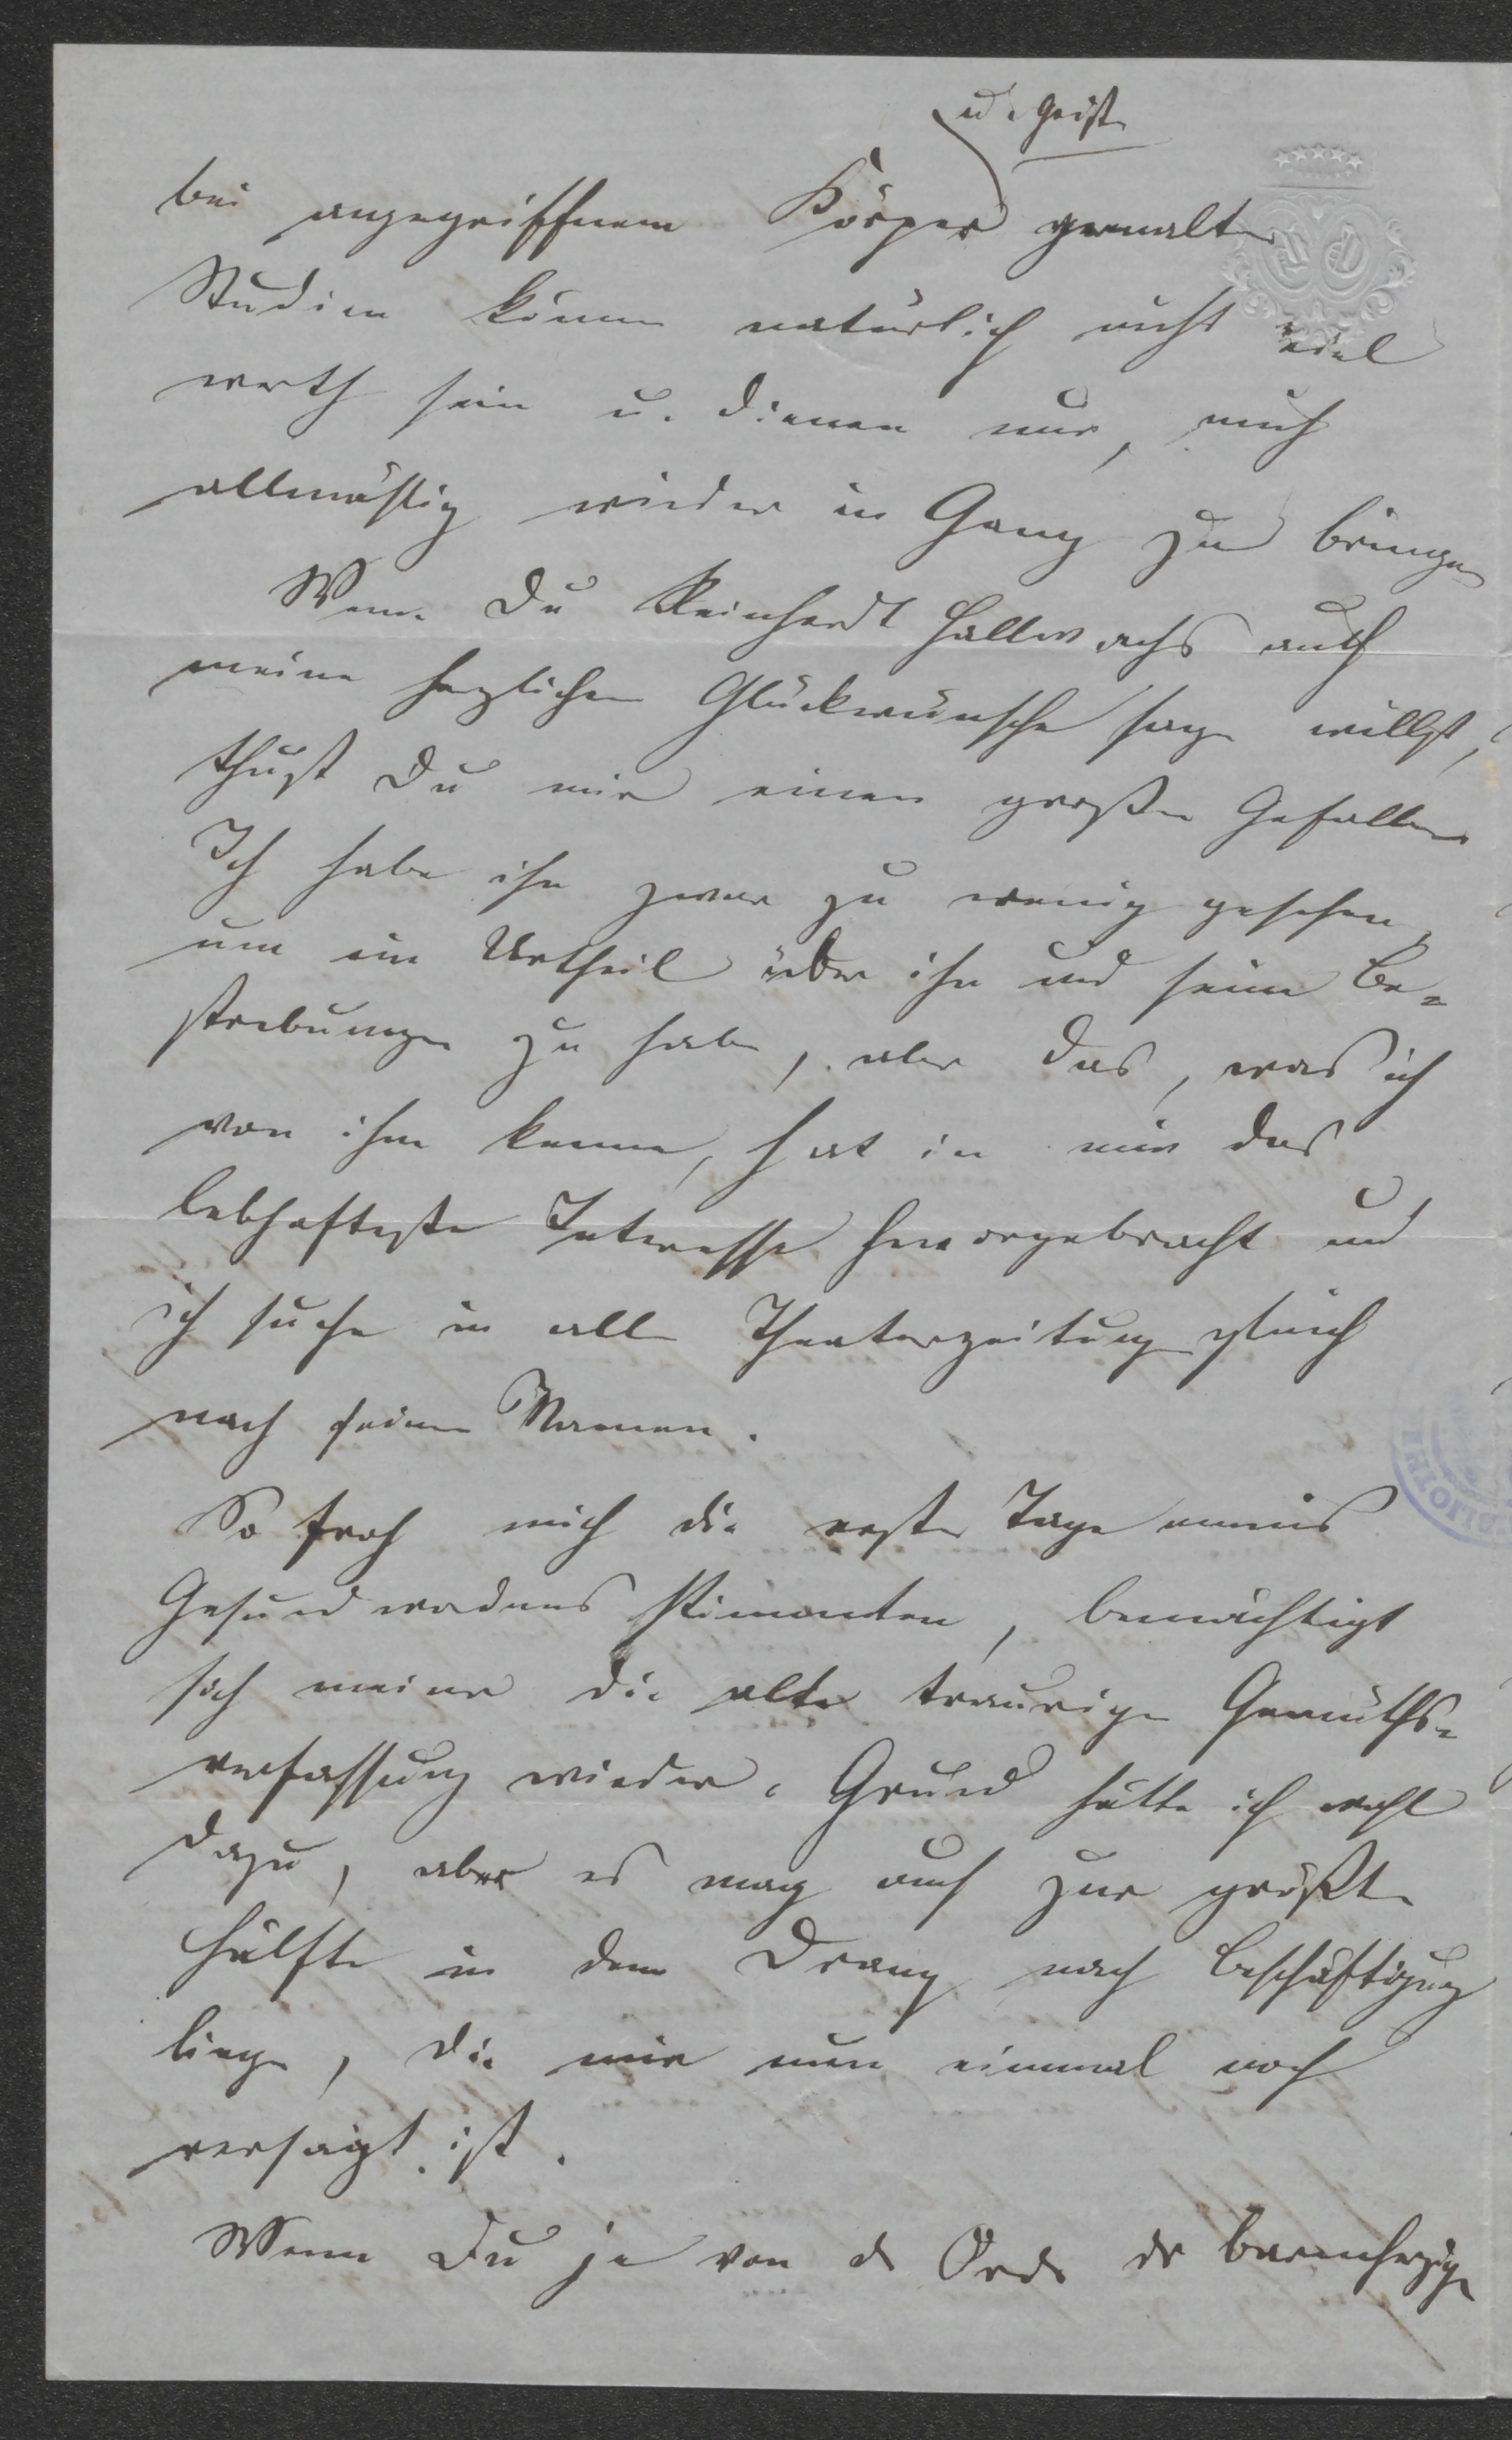 u. Geist
bei angegriffnem Körper gemalte
Studien können natürlich nicht viel
werth sein u. dienen nur, mich
allmählig wieder in Gang zu bringen
Wenn Du Reinhardt Hallwachs auch
meine herzlichen Glückwünsche sagen willst,
thust Du mir einen großen Gefallen
Ich habe ihn zwar zu wenig gesehen,
um ein Urtheil über ihn und seine Be=
strebungen zu haben, aber das, was ich
von ihm kenne, hat in mir das
lebhafteste Interesse hervorgebracht und
ich suche in allen Theaterzeitungen gleich
nach seinem Namen.
So froh mich die ersten Tage meines
Gesundwerdens stimmten, bemächtigt
sich meiner die alte traurige Gemüths=
verfassung wieder. Grund hätte ich wohl
dazu, aber es mag auch zur größten
Hälfte in dem Drang nach Beschäftigung
liegen, die mir nun einmal noch
versagt ist.
Wenn Du je von d Orden der barmherzigen